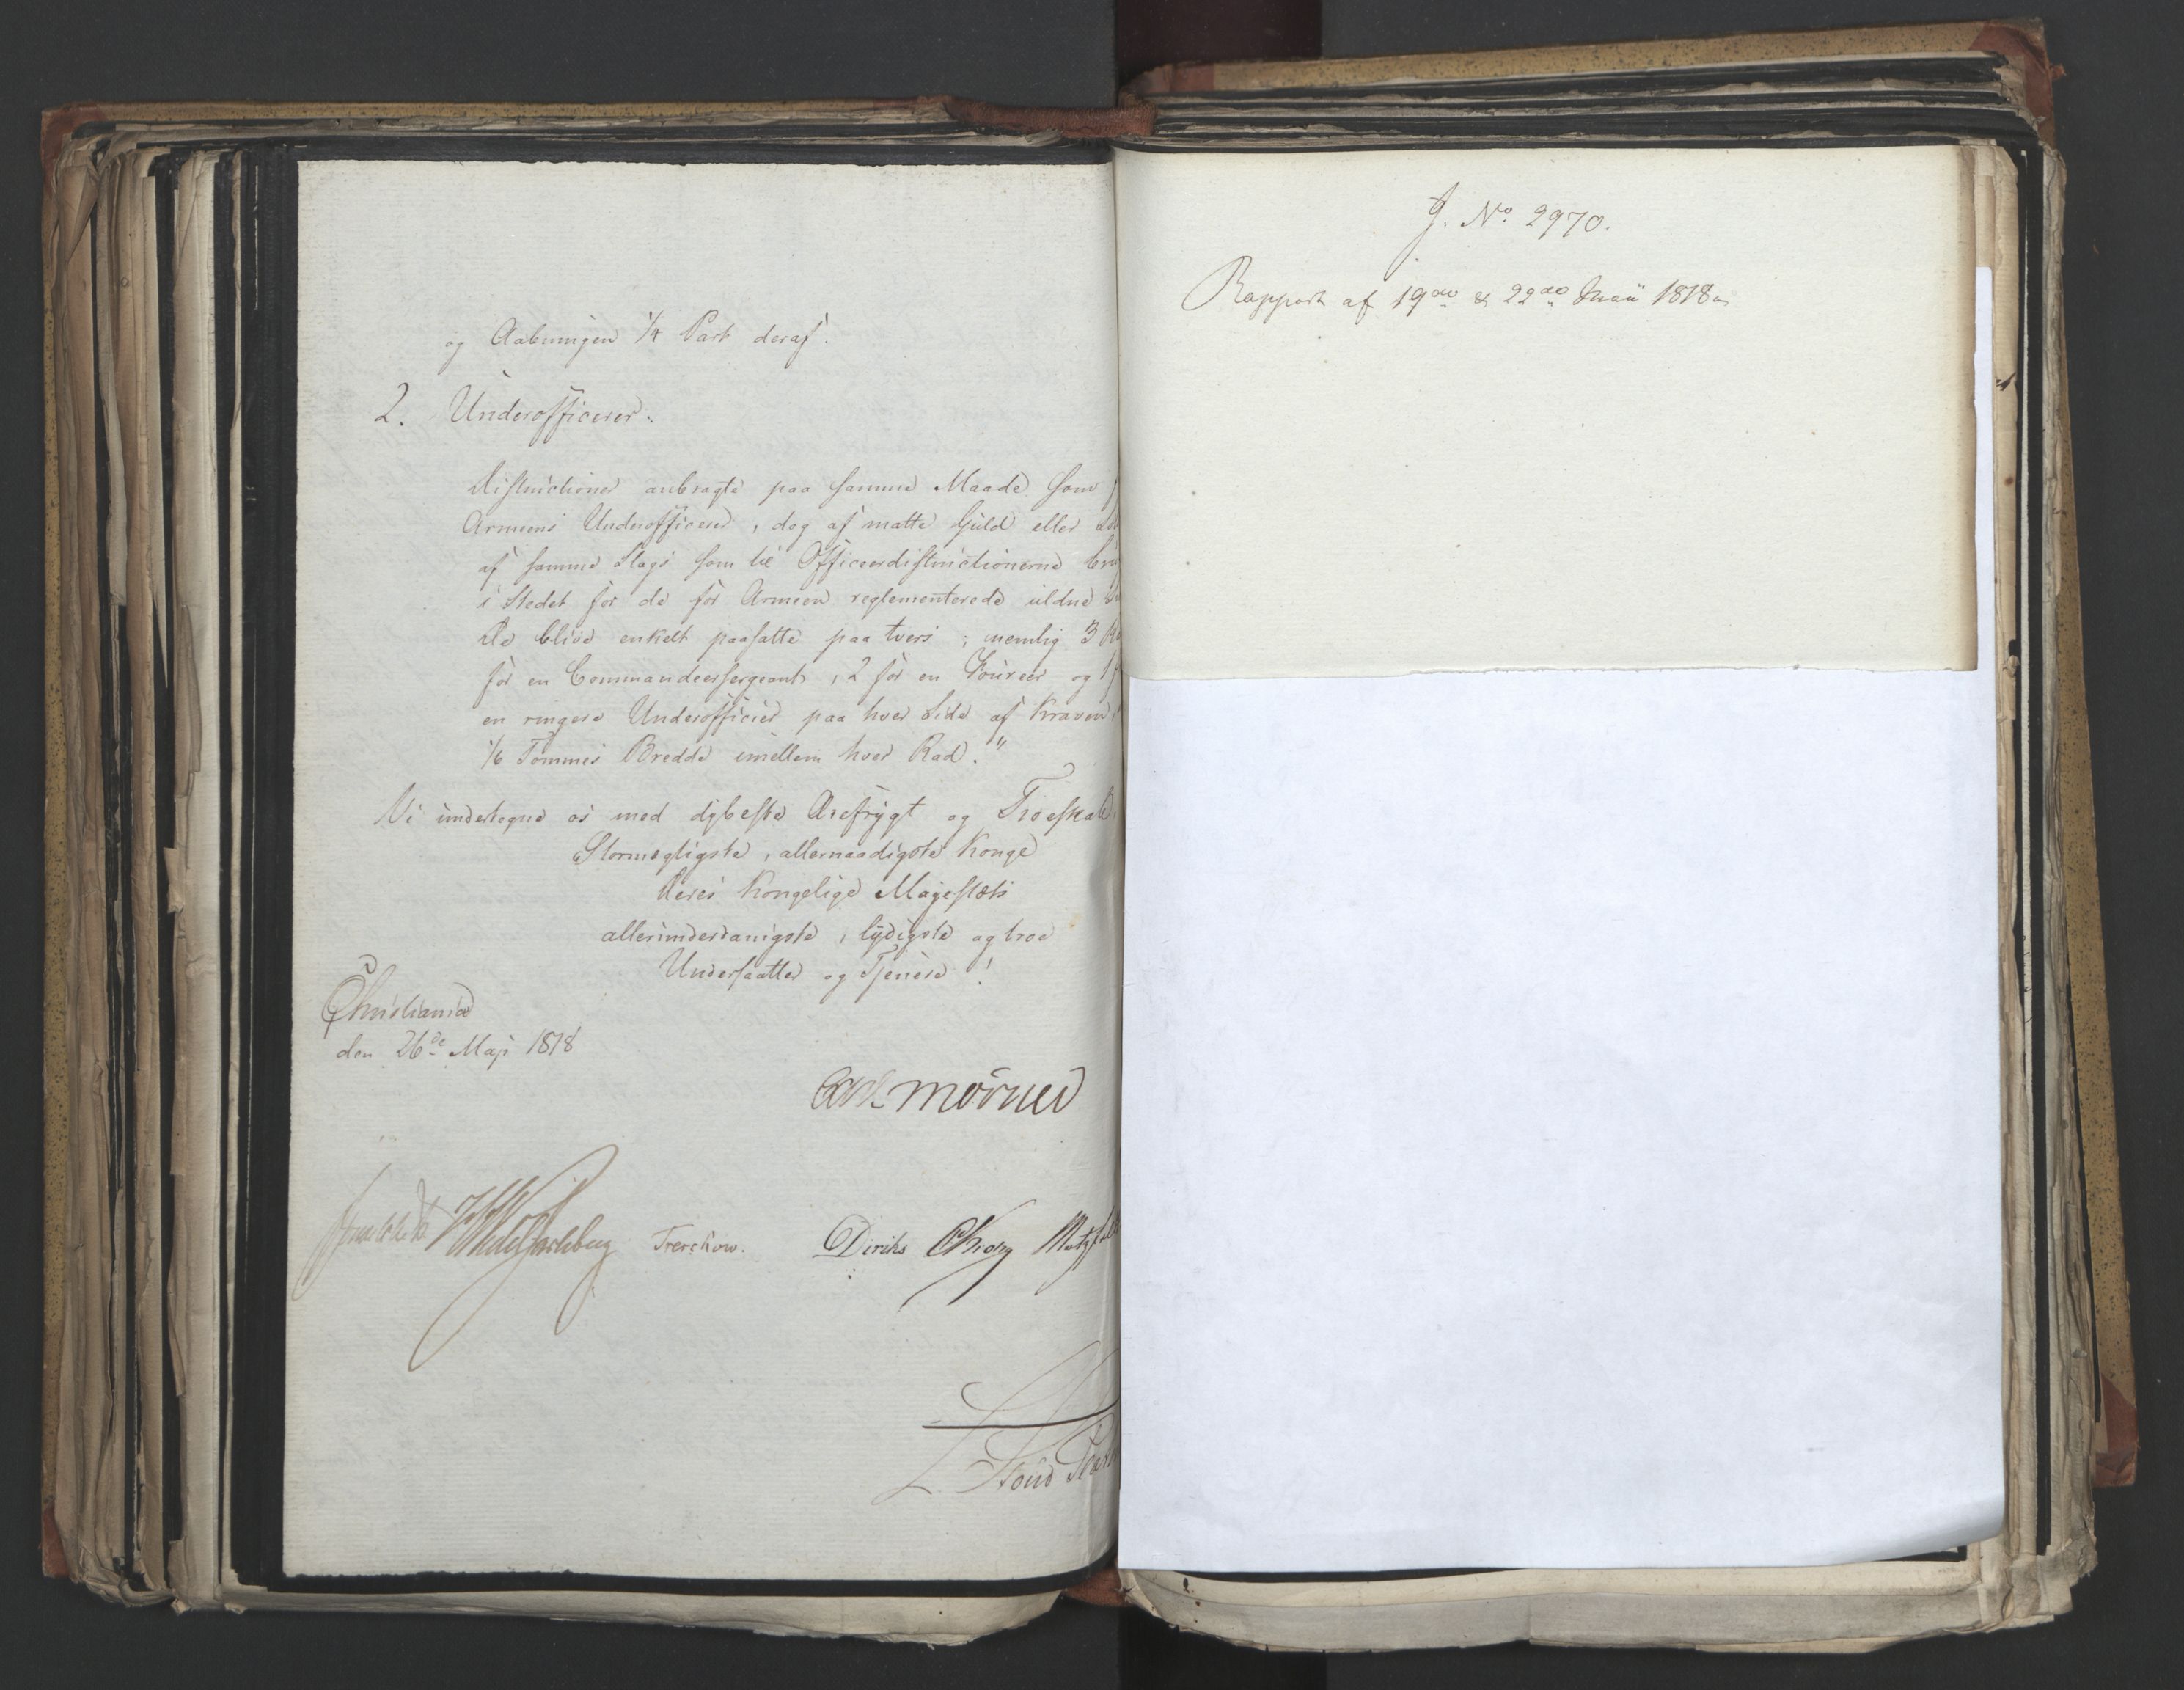 og Aabningen 1/4 Part deraf.
2. Underofficerer:
Distinctioner anbragte paa samme Maade som
Armeens Underofficerer, dog af matte Guld eller
af samme Slags som til Officeersdistinctionerne
i Stedet for de for Armeen reglementerede uldne
De blive enkelt paasatte paa tvers; nemlig 3
for en Commandeersergeant, 2 for en Foureer og 1
en ringere Underofficier paa hver Side af Kraven
1/6 Tommes Bredde imellem hver Rad."
Vi undertegne os med dybeste Ærefrygt og
Stormægtigste, allernaadigste Konge
Deres Kongelige Majestæts
allerunderdanigste, lydigste og troe
Undersaatter og Tjenere!
Christiania
den 26de Maji 1818
Mörner
Treschow. Diriks Krog
J. No. 2970.
Rapport af 19de & 22de Maii 1818